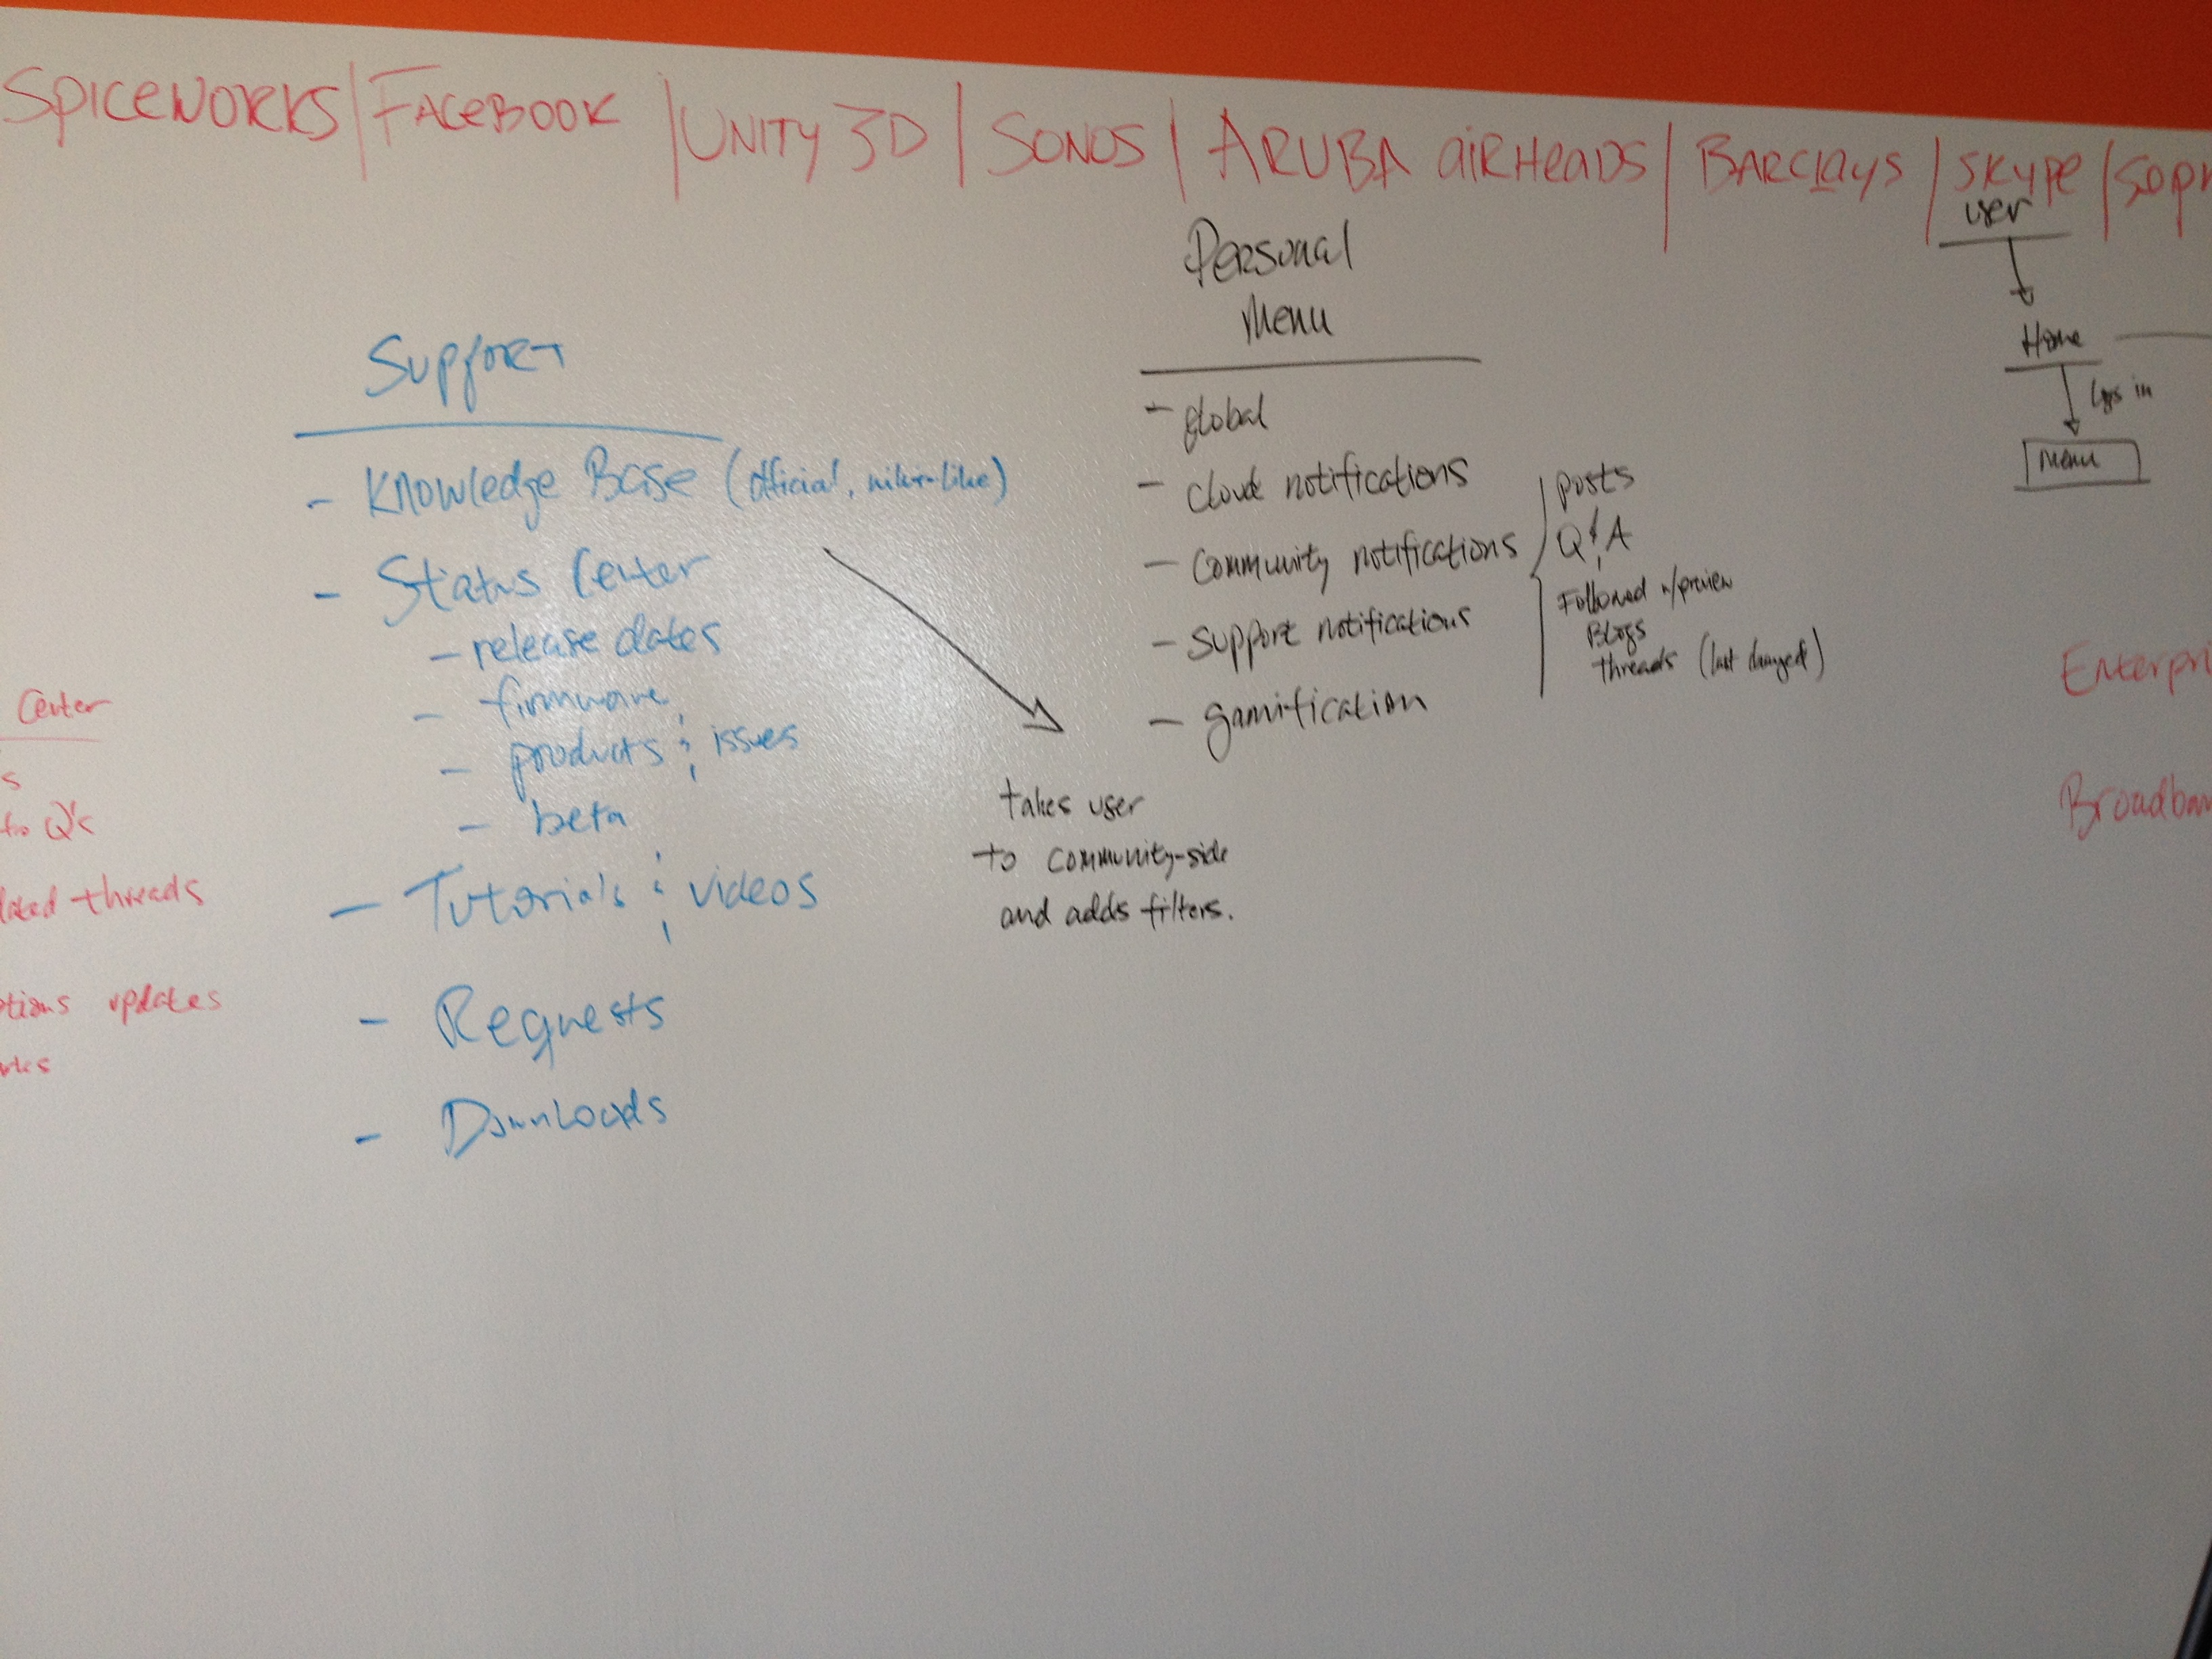 Spiceworks | Facebook | Unity 3D | Sonos | Aruba Airheads | Barclays | Skype |
Support
- Knowledge Base (official, wiki-like)
- Status Center
- release dates
- firmware
- products & issues
- beta
- Tutorials & videos
- Requests
- Downloads
takes user
to community-side
and adds filters.
Personal
Menu
- global
- cloud notifications
- community notifications
- support notifications
- gamification
posts
Q & A
Followed w/preview
Blogs
threads (last changed)
user
Home
logs in
Menu
Center
Q's
threads
updates